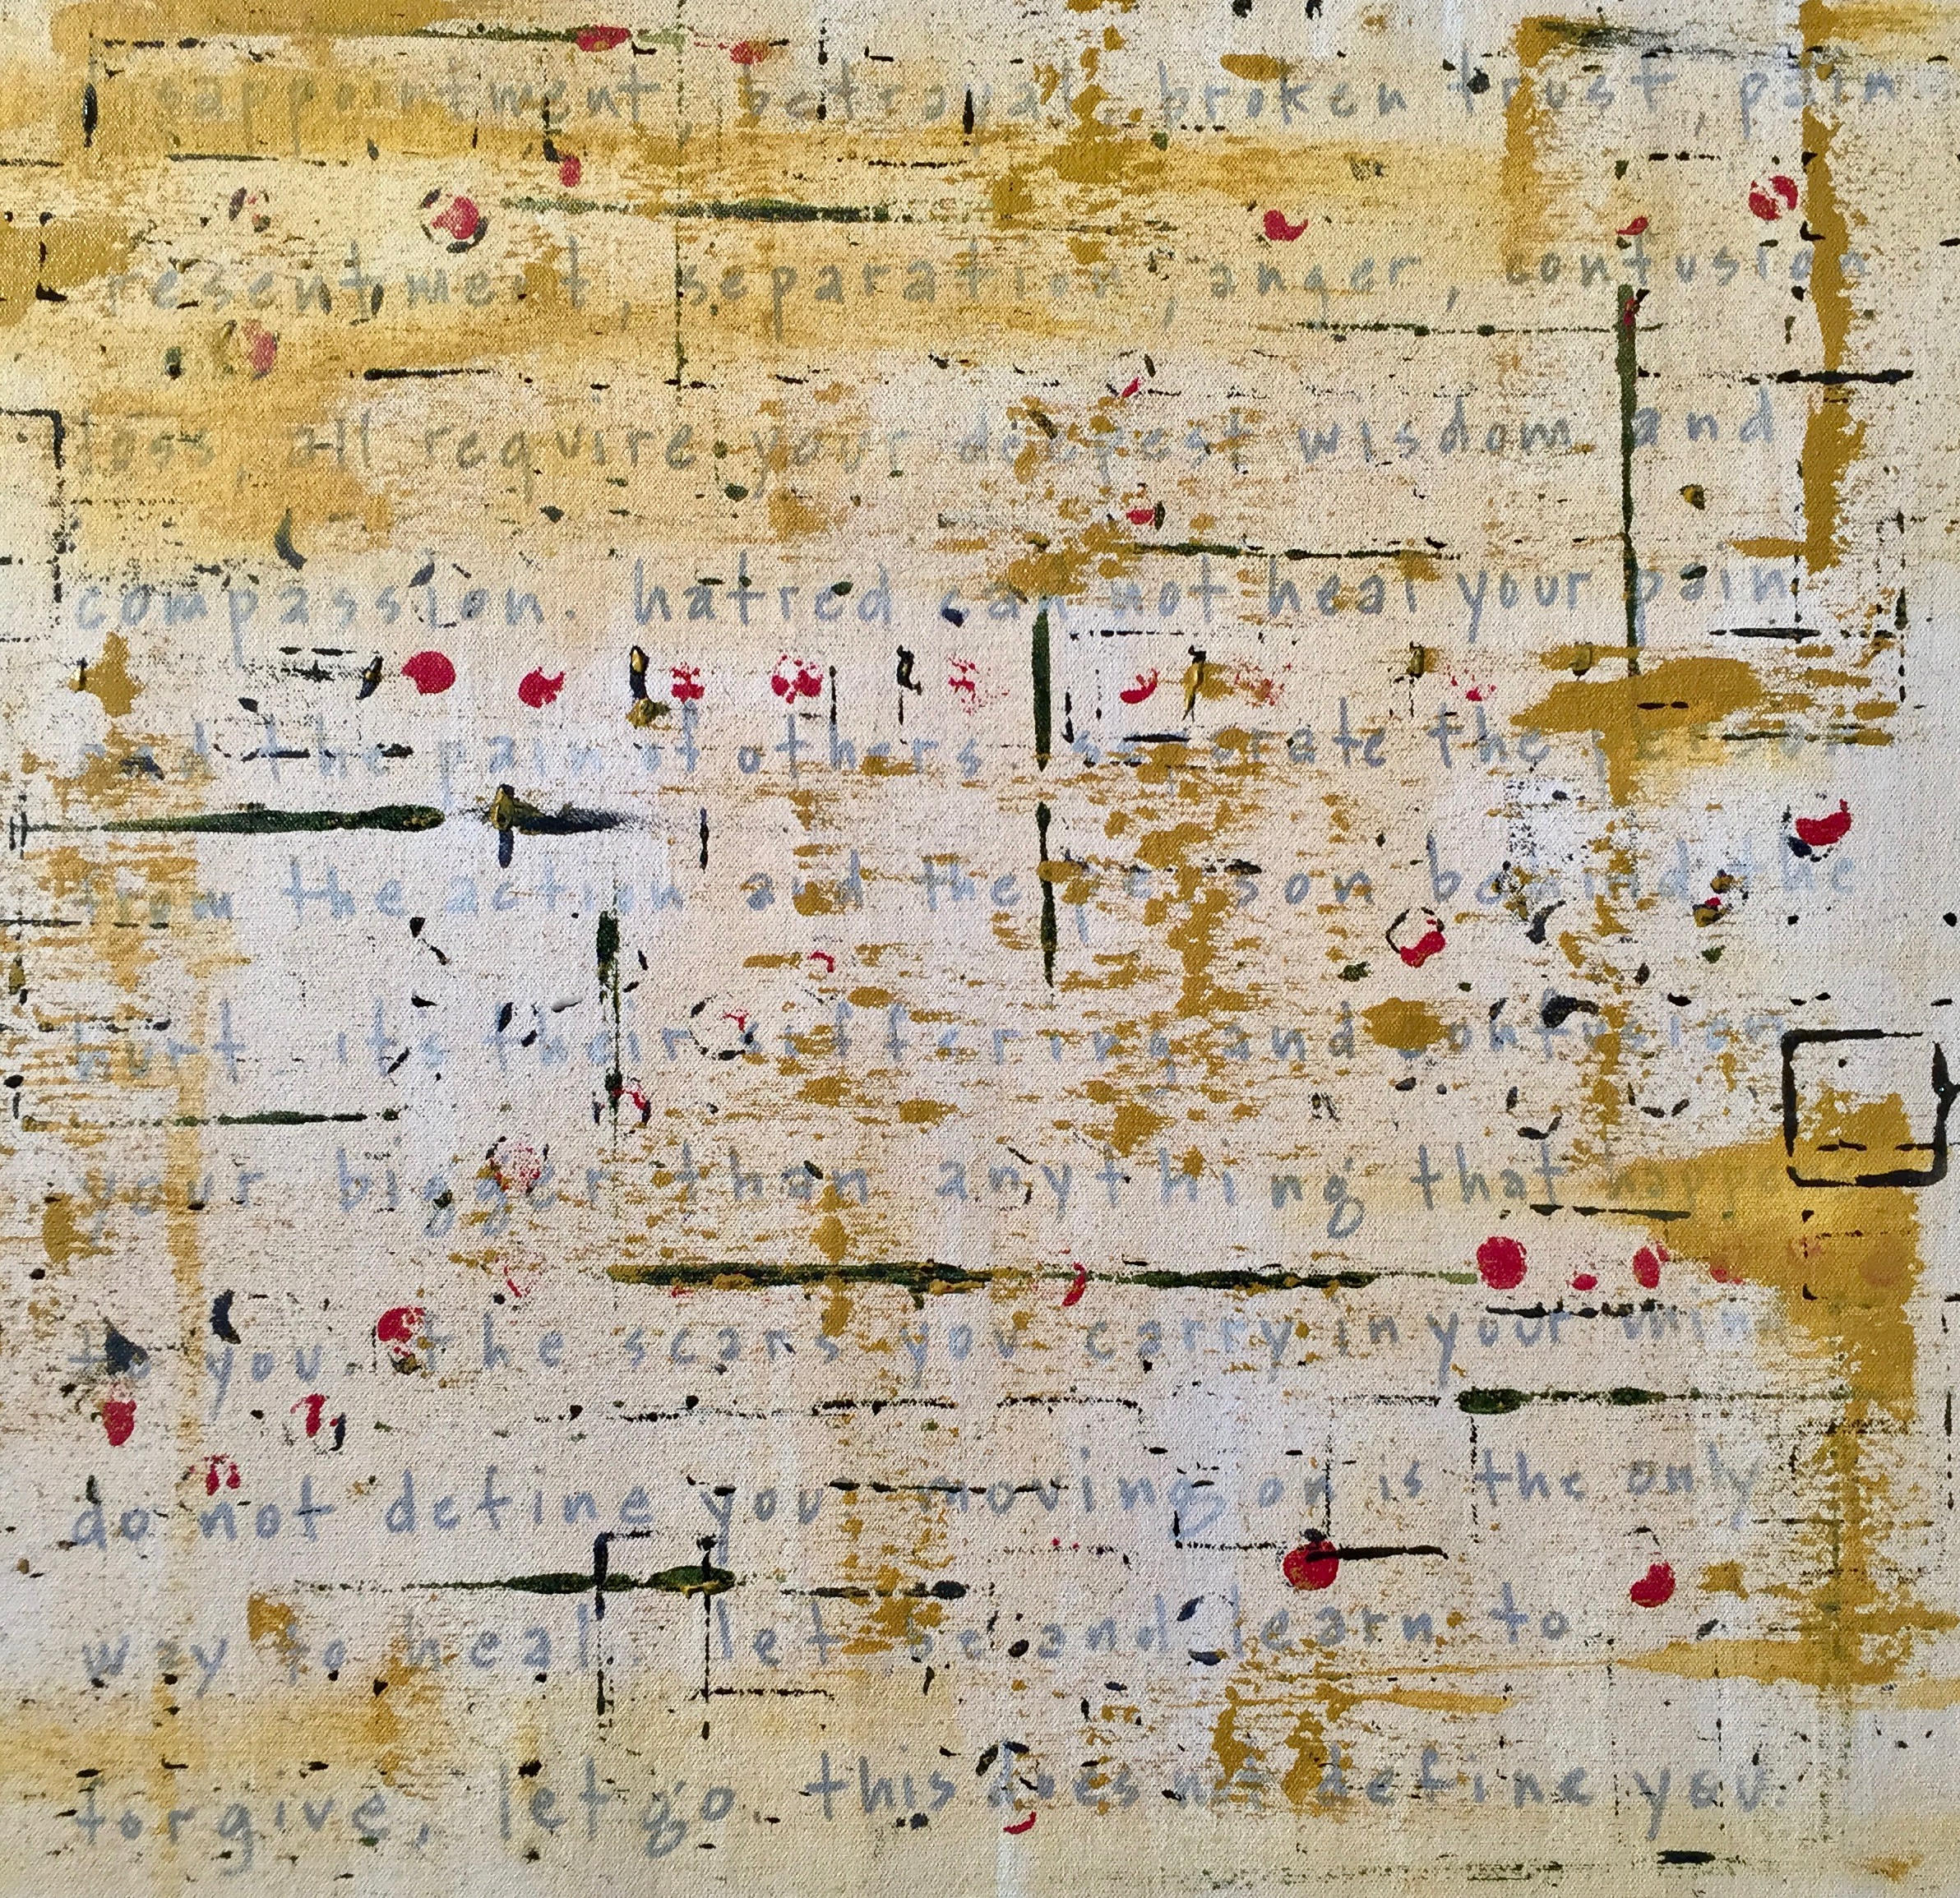 disappointment, betrayal, broken trust, pain
resentment, separation, anger, confusion
loss, all require your deepest wisdom and
compassion. hatred can not heal your pain
and the pain of others. separate the person
from the action and the person behind the
hurt its their suffering and confusion
your bigger than anything that
to you. the scars you carry in your mind
do not define you. moving on is the only
way to heal. let be and learn to
forgive, let go. this does not define you.